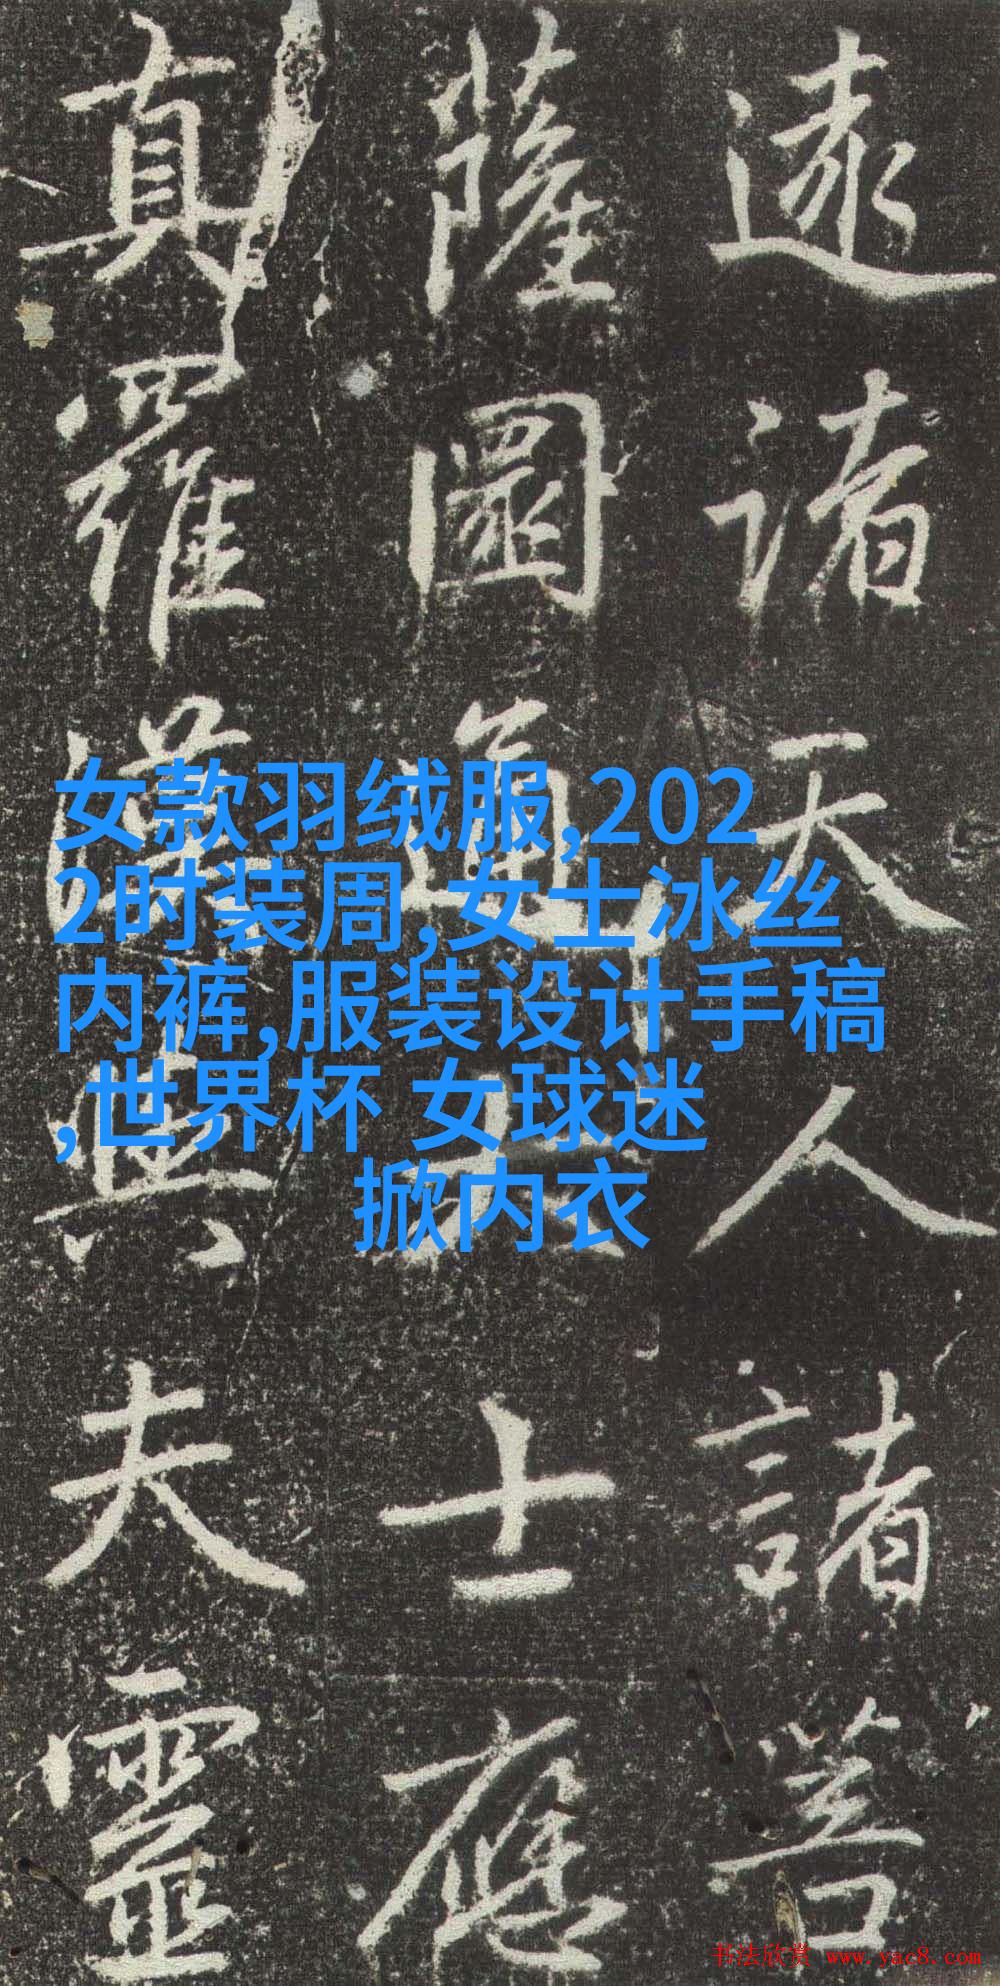 逮諸天人諸菩
薩圓通大士應
真羅漢與夫靈
女款羽绒服,202
2时装周,女士冰丝
内裤,服装设计手稿
,世界杯 女球迷
掀内衣
书法欣赏 www.yac8.com